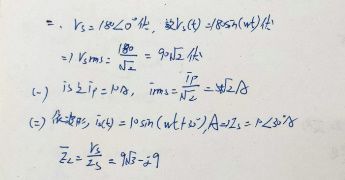 二、Vs=180∠0°伏, 設Vs(t)=180sin(wt)伏
⇒Vsrms=180/√2=90√2伏
(一) is之Ip=10A, irms=Ip/√2=5√2A
(二) 依波形, is(t)=10sin(wt+30°)A⇒Is=10∠30°A
Z̄L=Vs/Is=9√3-j9